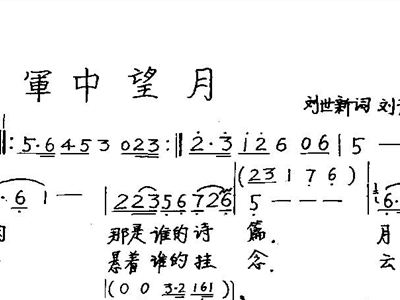 軍中望月
刘世新词 刘
5·6453 023 2·3 126 06 5 —
(23 1 7 6)
6 1 — 22356726 5 — — 6·
那是谁的诗 篇. 月
悬着谁的挂 念. 云
(0 0 3·2 161)